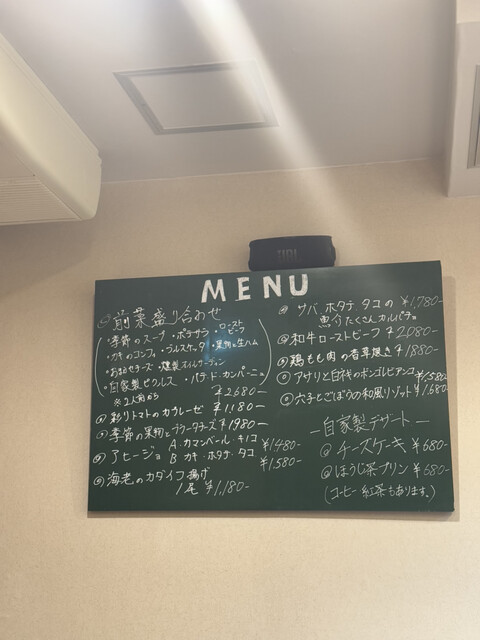 JBL
MENU
前菜盛り合わせ
・季節のスープ ・ポテサラ ・ローストビーフ
・カキのコンフィ ・ブルスケッタ ・果物と生ハム
・おまかせチーズ ・燻製オイルサーディン
・自家製ピクルス ・パテ・ド・カンパーニュ
※2人前から ¥2680-
彩りトマトのカプレーゼ ¥1180-
季節の果物とブラータチーズ ¥1980-
アヒージョ A カマンベール・キノコ ¥1480-
B カキ・ホタテ・タコ ¥1580-
海老のカダイフ揚げ
1尾 ¥1,180-
サバ、ホタテ、タコの ¥1,780-
魚介たくさんカルパッチョ
和牛ローストビーフ ¥2080-
鶏もも肉の香草焼き ¥1880-
アサリと白身のボンゴレビアンコ ¥1,580-
ごぼうの和風リゾット ¥1,680-
—自家製デザート—
チーズケーキ ¥680-
ほうじ茶プリン ¥680-
(コーヒー 紅茶もあります。)